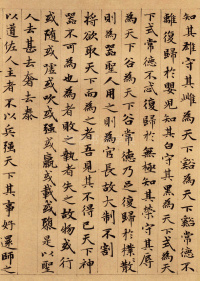 知其雄守其雌為天下谿為天下谿常德不
離復歸於嬰兒知其白守其黑為天下式為天
下式常德不忒復歸於無極知其榮守其辱
為天下谷為天下谷常德乃足復歸於樸樸散
則為器聖人用之則為官長故大制不割
將欲取天下而為之者吾見其不得已天下神
器不可為也為者敗之執者失之故物或行
或隨或噓或吹或強或羸或載或隳是以聖
人去甚去奢去泰
以道佐人主者不以兵強天下其事好還師之